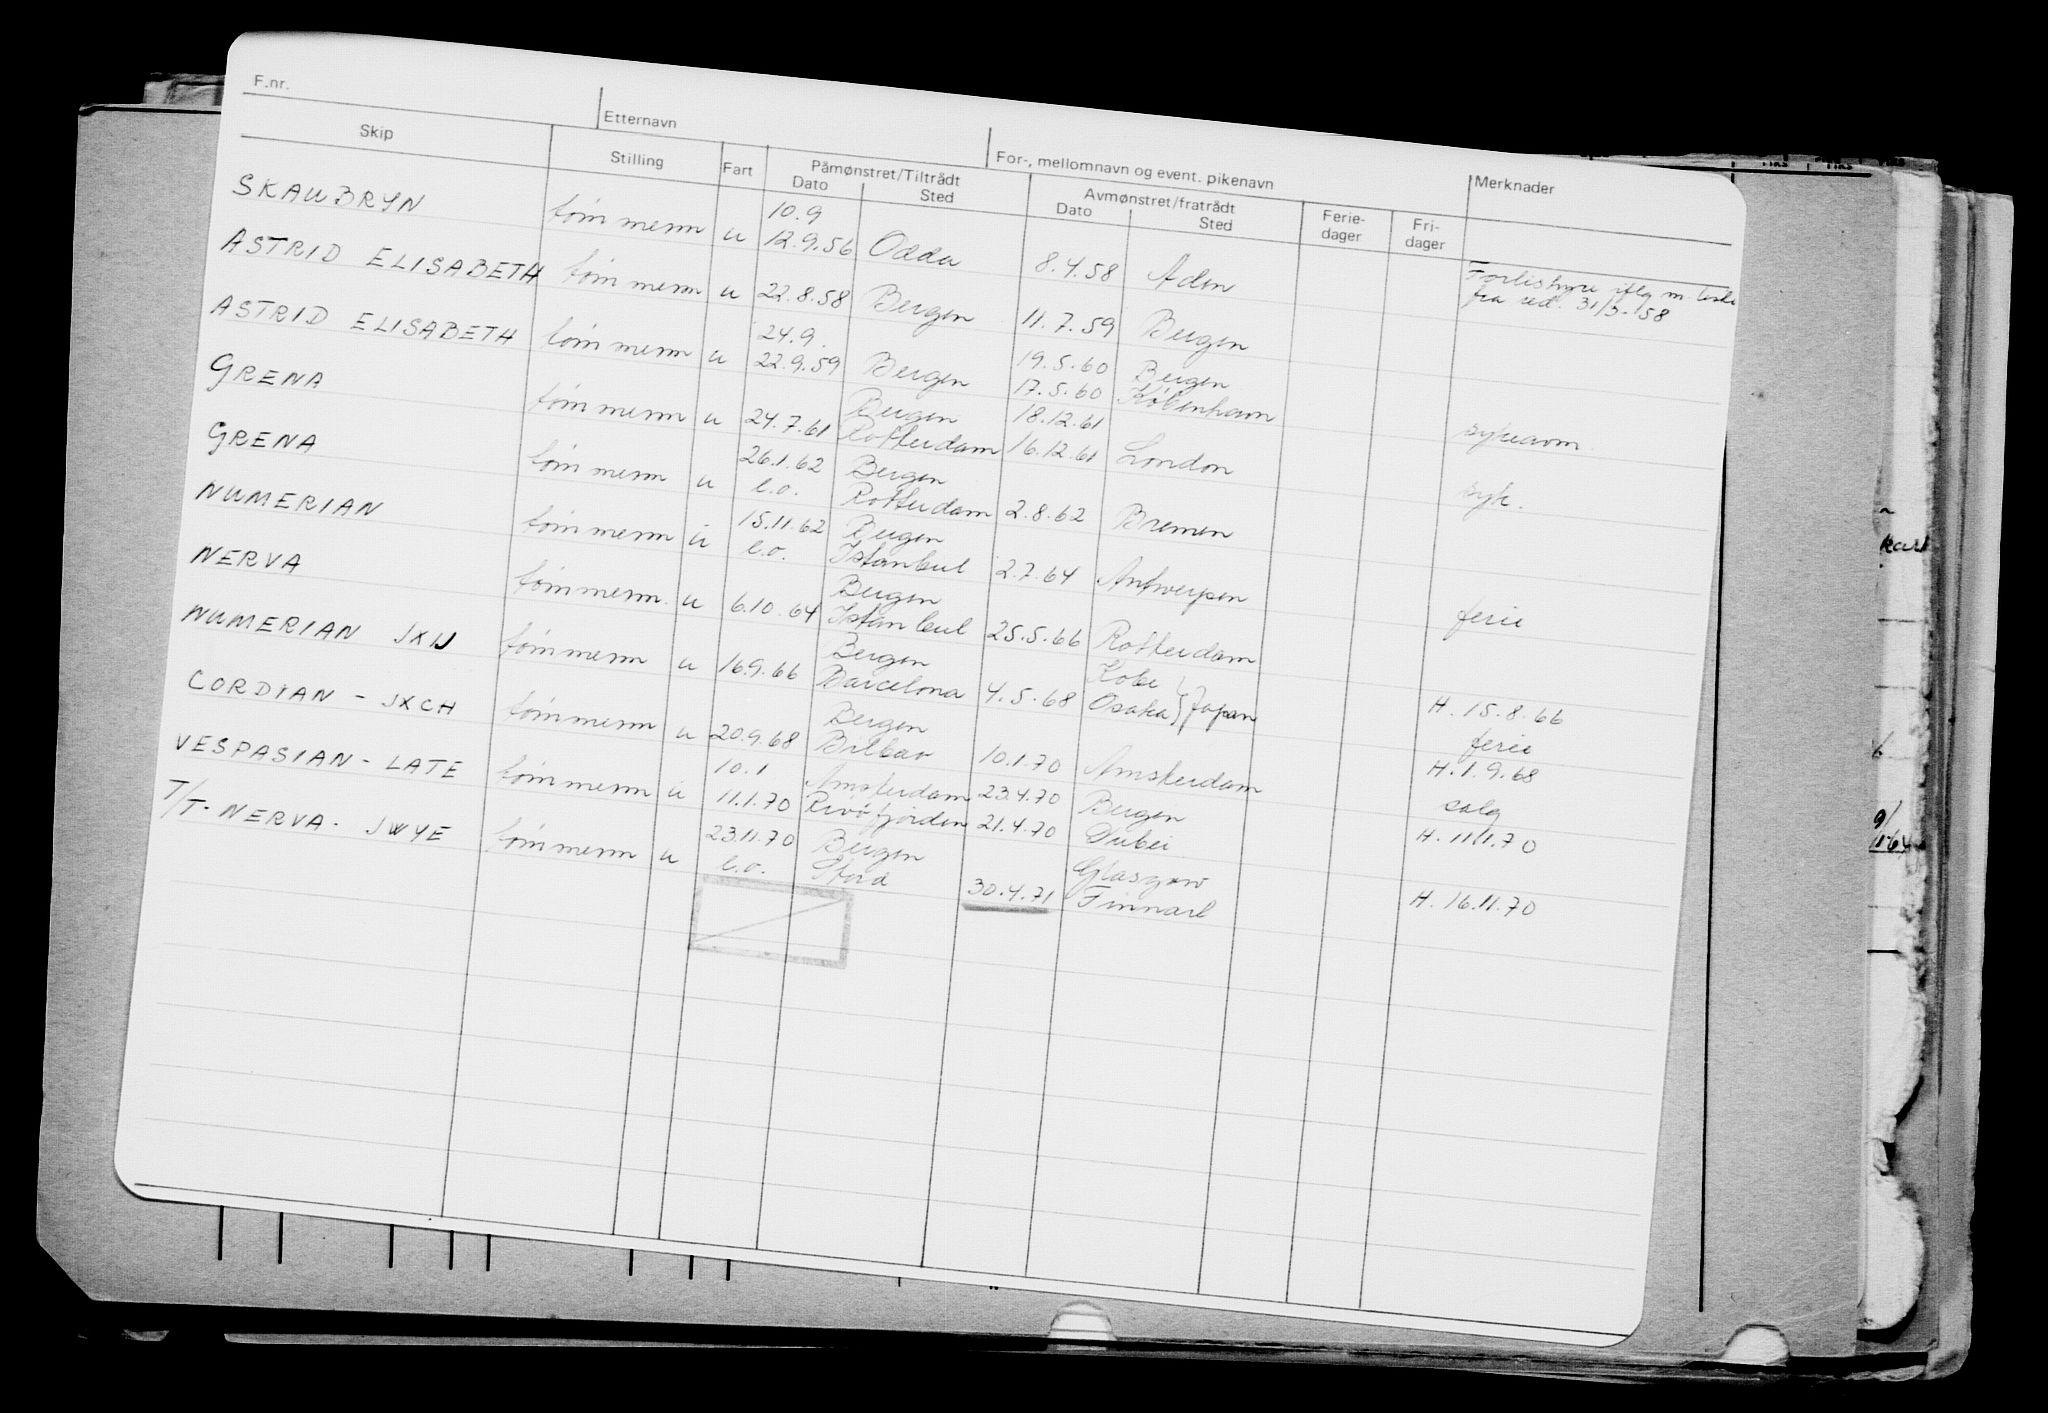 F.nr.
Etternavn
For-, mellomnavn og event. pikenavn
Skip
Stilling
Fart
Påmønstret/Tiltrådt
Dato
Sted
Avmønstret/fratrådt
Dato
Sted
Ferie-
dager
Fri-
dager
Merknader
10.9
SKAUBRYN tømmerm u 12.9.56 Odda 8.4.58 Aden Forlishyre iflg m
fra red. 31/3-58
ASTRID ELISABETH tømmerm u 22.8.58 Bergen 11.7.59 Bergen
24.9. 19.5.60 Bergen
ASTRID ELISABETH tømmerm u 22.9.59 Bergen 17.5.60 København sykeavm.
Bergen 18.12.61
GRENA tømmerm u 24.7.61 Rotterdam 16.12.61 London syk.
26.1.62 Bergen
GRENA tømmerm u l.o. Rotterdam 2.8.62 Bremen
15.11.62 Bergen
NUMERIAN tømmerm u l.o. Istanbul 2.7.64 Antwerpen ferie
Bergen
NERVA tømmerm. u 6.10.64 Istanbul 25.5.66 Rotterdam H. 15.8.66
Bergen Kobe ferie
NUMERIAN JXIJ tømmerm u 16.9.66 Barcelona 4.5.68 Osaka } Japan H. 1.9.68
Bergen salg
CORDIAN - JXCH tømmerm u 20.9.68 Bilbao 10.1.70 Amsterdam H. 11.1.70
10.1 Amsterdam 23.4.70 Bergen
VESPASIAN - LATE tømmerm u 11.1.70 Rivøfjorden 21.4.70 Dubei H. 16.11.70
23.11.70 Bergen Glasgow
T/T- NERVA - JWYE tømmerm u l.o. Stord 30.4.71 Finnart